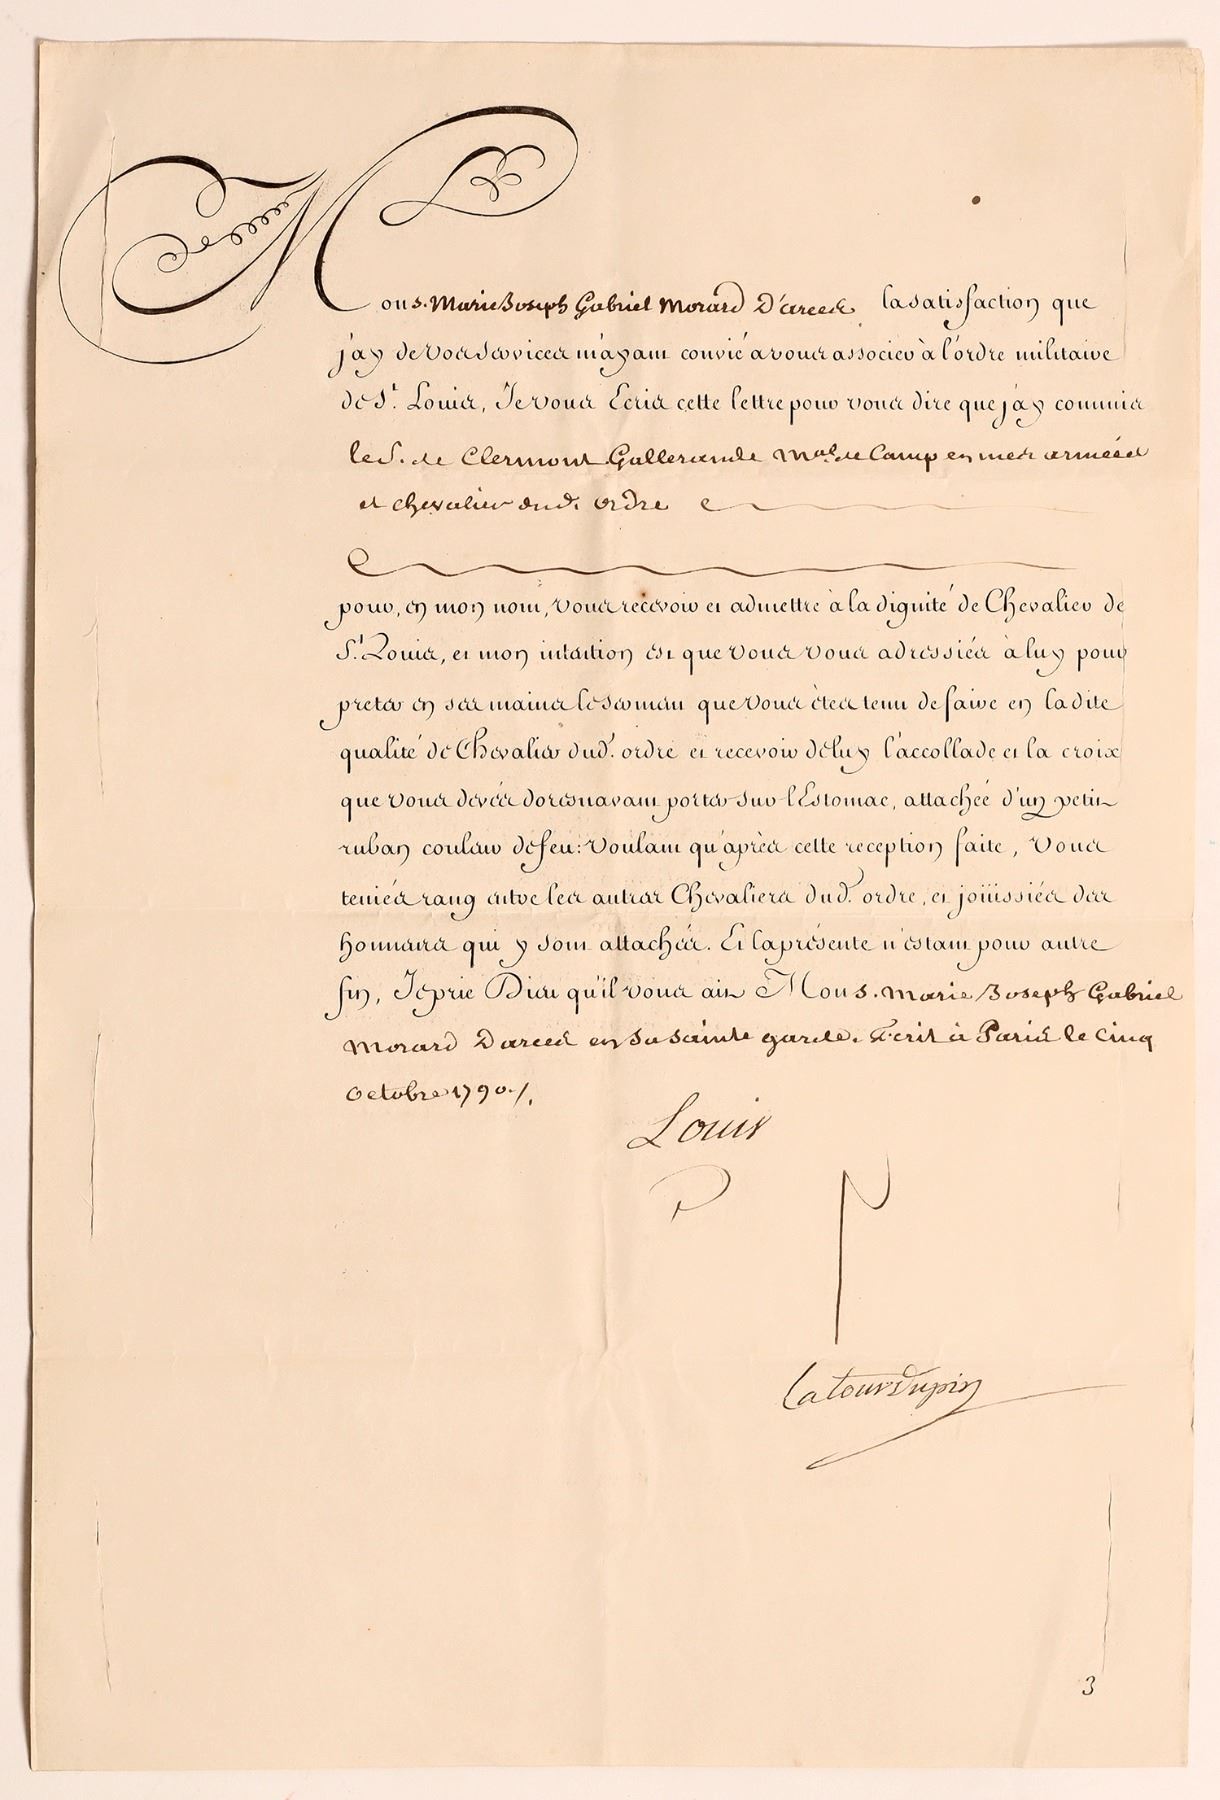 Mons. Marie Joseph Gabriel Morard D'arces la satisfaction que
j'ay de vos services m'ayant convié a vous associer à l'ordre militaire
de St. Louis, Je vous Ecris cette lettre pour vous dire que j'ay commis
le S. de Clermont Gallerande Mal. de Camp en mes armées
et chevalier dud. ordre
pour, en mon nom, vous recevoir et admettre à la dignité de Chevalier de
St. Louis, et mon intention est que vous vous adressiés à luy pour
preter en ses mains le serment que vous étes tenu de faire en la dite
qualité de Chevalier dud. ordre et recevoir de luy l'accollade et la croix
que vous devés doresnavant porter sur l'Estomac, attachée d'un petit
ruban couleur de feu: Voulant qu'après cette reception faite, Vous
teniés rang entre les autres Chevaliers dud. ordre, et joüissiés des
honneurs qui y sont attachés. Et la présente n'estant pour autre
fin, Je prie Dieu qu'il vous ait Mons. Marie Joseph Gabriel
Morard Darces en sa sainte garde. Ecrit à Paris le cinq
octobre 1790./.
Louis
Latourdupin
3